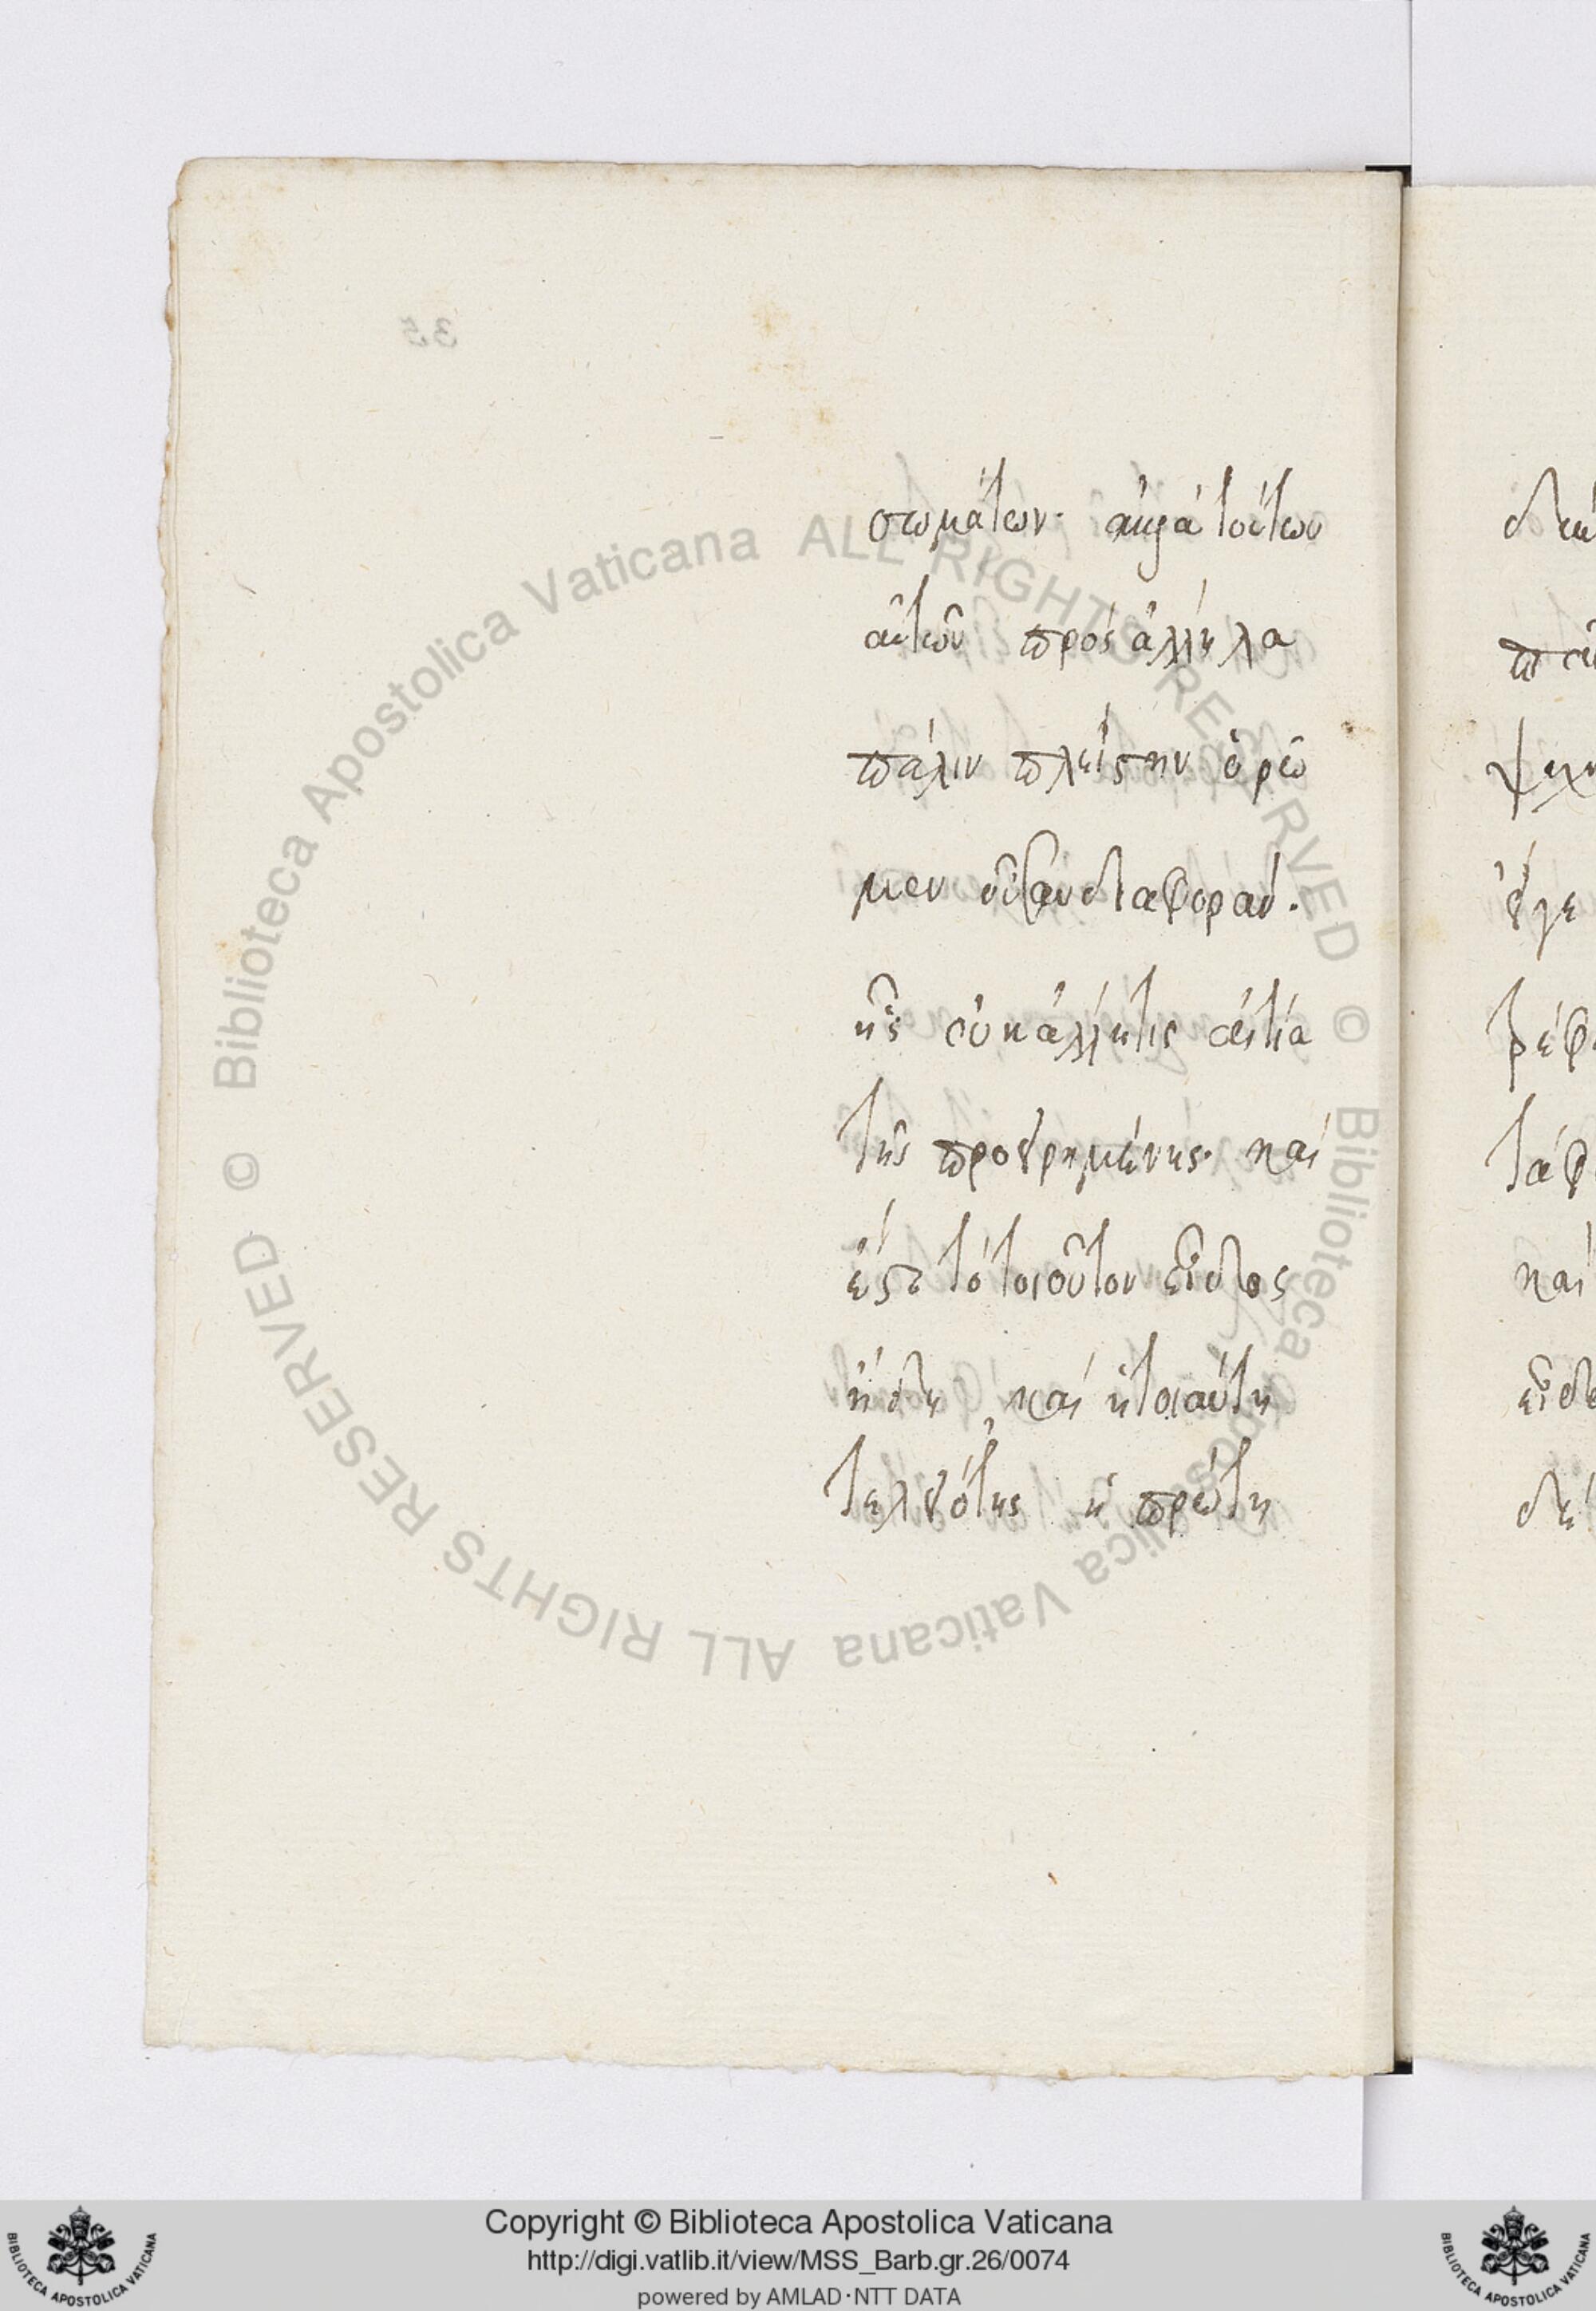 σωμάτων. ἀλλὰ τούτων
αὐτῶν πρὸς ἄλληλα
πάλιν πλείστην ὁρῶ
μεν οὖσαν διαφοράν.
ἧς οὐκ ἄλλη τις αἰτία
τῆς προειρημένης. καὶ
ἔστι τὸ τοιοῦτον εἶδος
ἤδη, καὶ ἡ τοιαύτη
τελειότης ἡ πρώτη
35
© Biblioteca Apostolica Vaticana ALL RIGHTS RESERVED © Biblioteca Apostolica Vaticana ALL RIGHTS RESERVED
καὶ
Copyright © Biblioteca Apostolica Vaticana
http://digi.vatlib.it/view/MSS_Barb.gr.26/0074
powered by AMLAD·NTT DATA
BIBLIOTECA APOSTOLICA VATICANA
BIBLIOTECA APOSTOLICA VATICANA